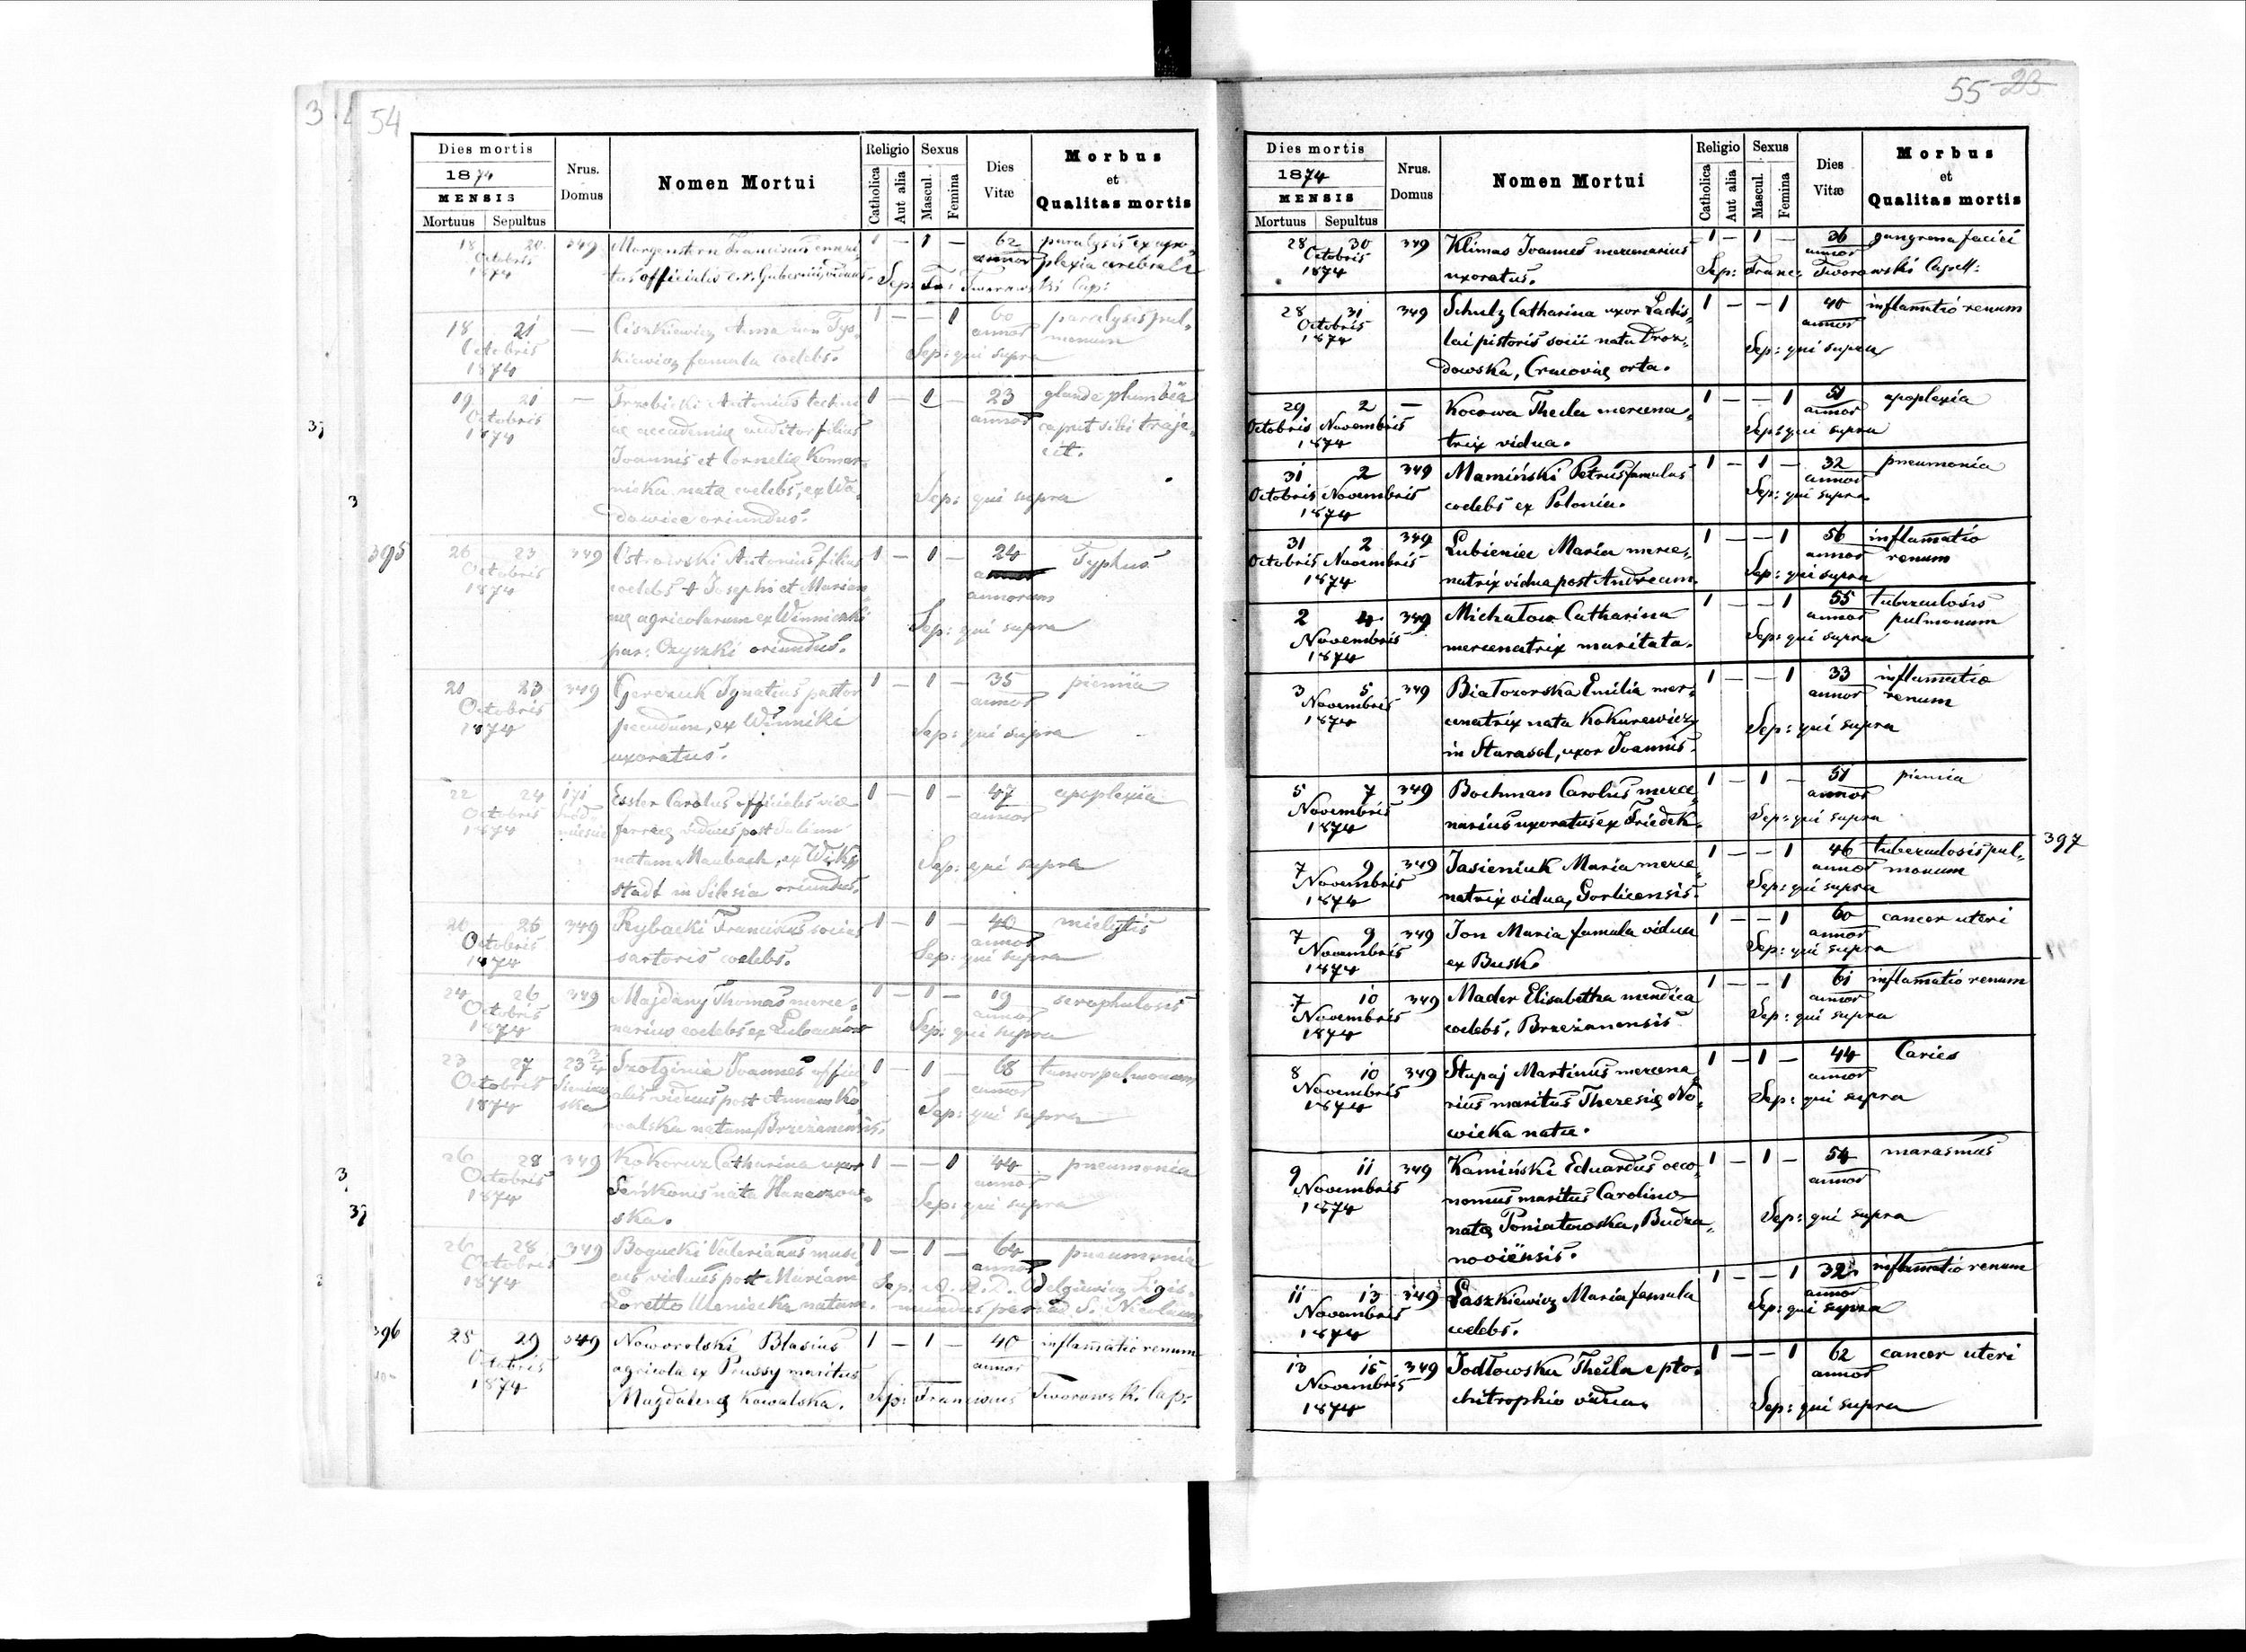 54
Dies mortis
1874
MENSIS
Mortuus Sepultus
Nrus.
Domus
Nomen Mortui
Religio
Catholica
Aut alia
Sexus
Mascul.
Femina
Dies
Vitæ
Morbus
et
Qualitas mortis
18 20 349 Morgenstern Franciscus emeri- 1 — 1 — 62 paralysis ex apo-
Octobris tus officialis c.r. Gubernii, viduus. annor plexia cerebrali
1874 Sep: Fr: Tworowski Cap:
18 21 — Ciszkiewicz Anna seu Tys- 1 — — 1 60 paralysis pul-
Octobris kiewicz famula coelebs. annor monum
1874 Sep: qui supra
19 21 — Trzebicki Antonius 1 — 1 — 23 glande plumbea
Octobris ac accademiæ auditor filius annor caput sibi traje-
1874 Joannis et Corneliæ Komar- cit.
nicka natæ coelebs, ex Wa- Sep: qui supra
dowice oriundus.
395
20 23 349 Ostrowski Antonius filius 1 — 1 — 24 Typhus
Octobris coelebs Josephi et Marian- annorum
1874 næ agricolarum ex Winniczki Sep: qui supra
par: Czyszki oriundus.
21 23 349 Gereziuk Ignatius pastor 1 — 1 — 35 piemia
Octobris pecudum, ex Winniki annor
1874 uxoratus. Sep: qui supra
22 24 171 Essler Carolus officialis viæ 1 — 1 — 47 apoplexia
Octobris ferreæ viduus post Juliam annor
1874 natam Maubach, ex Wik- Sep: qui supra
stadt in Silesia oriundus.
26 349 Rybacki Franciscus socius 1 — 1 — 40 mielitis
Octobris sartoris coelebs. annor
1874 Sep: qui supra
24 26 349 Majdany Thomas merce- 1 — 1 — 19 scrophulosis
Octobris narius coelebs ex Lubaczów annor
1874 Sep: qui supra
23 27 23 3/4 Szolginia Joannes offici- 1 — 1 — 68 tumor pulmonum
Octobris Sieniaw- alis viduus post Annam Ko- annor
1874 ska walska natam, Brzezanensis. Sep: qui supra
26 28 349 Kokoruz Catharina uxor 1 — — 1 44 pneumonia
Octobris Seńkonis nata annor
1874 ska. Sep: qui supra
26 28 349 Bogucki Valerianus musi- 1 — 1 — 64 pneumonia
Octobris cus viduus post Mariam annor
1874 Loretto natam. Sep: A. R. D. Odelgiewicz Sigis-
mundus par: ad S. Nicolaum
396
25 29 349 Noworolski Blasius 1 — 1 — 40 inflamatio renum
Octobris agricola ex Prussy maritus annor
1874 Magdalenæ Kowalska. Sep: Franciscus Tworowski Cap:
55 23
Dies mortis
1874
MENSIS
Mortuus Sepultus
Nrus.
Domus
Nomen Mortui
Religio
Catholica
Aut alia
Sexus
Mascul.
Femina
Dies
Vitæ
Morbus
et
Qualitas mortis
28 30 349 Klimas Joannes mercenarius 1 — 1 — 36 gangrena faciei
Octobris uxoratus. annor
1874 Sep: Franc: Tworowski Capell:
28 31 349 Schulz Catharina uxor Ladis- 1 — — 1 40 inflamatio renum
Octobris lai pistoris socii nata Droz- annor
1874 dowska, Cracoviæ orta. Sep: qui supra
29 2 — Kocowa Thecla mercena- 1 — — 1 51 apoplexia
Octobris Novembris trix vidua. annor
1874 Sep: qui supra
31 2 349 Mamiński Petrus famulus 1 — 1 — 32 pneumonia
Octobris Novembris coelebs ex Polonia. annor
1874 Sep: qui supra
31 2 349 Lubieniec Maria merce- 1 — — 1 56 inflamatio
Octobris Novembris natrix vidua post Andream. annor renum
1874 Sep: qui supra
2 4 349 Michałow Catharina 1 — — 1 55 tuberculosis
Novembris mercenatrix maritata. annor pulmonum
1874 Sep: qui supra
3 5 349 Białozorska Emilia mer- 1 — — 1 33 inflamatio
Novembris cenatrix nata Kokurewicz annor renum
1874 in Starasol, uxor Joannis. Sep: qui supra
5 7 349 Bochman Carolus merce- 1 — 1 — 51 piemia
Novembris narius uxoratus ex Friedek. annor
1874 Sep: qui supra
397
7 9 349 Jasieniuk Maria merce- 1 — — 1 46 tuberculosis pul-
Novembris natrix vidua, Gorlicensis. annor monum
1874 Sep: qui supra
7 9 349 Jon Maria famula vidua 1 — — 1 60 cancer uteri
Novembris ex Busk. annor
1874 Sep: qui supra
7 10 349 Mader Elisabetha mendica 1 — — 1 61 inflamatio renum
Novembris coelebs, Brzezanensis annor
1874 Sep: qui supra
8 10 349 Stupaj Martinus mercena- 1 — 1 — 44 Caries
Novembris rius maritus Theresiæ No- annor
1874 wicka nata. Sep: qui supra
9 11 349 Kamiński Eduardus oeco- 1 — 1 — 54 marasmus
Novembris nomus maritus Carolinæ annor
1874 natæ Poniatowska, Budza- Sep: qui supra
noviensis.
11 13 349 Laszkiewicz Maria famula 1 — — 1 32 inflamatio renum
Novembris coelebs. annor
1874 Sep: qui supra
13 15 349 Jodłowska Thecla e pto- 1 — — 1 62 cancer uteri
Novembris chitrophio vidua. annor
1874 Sep: qui supra